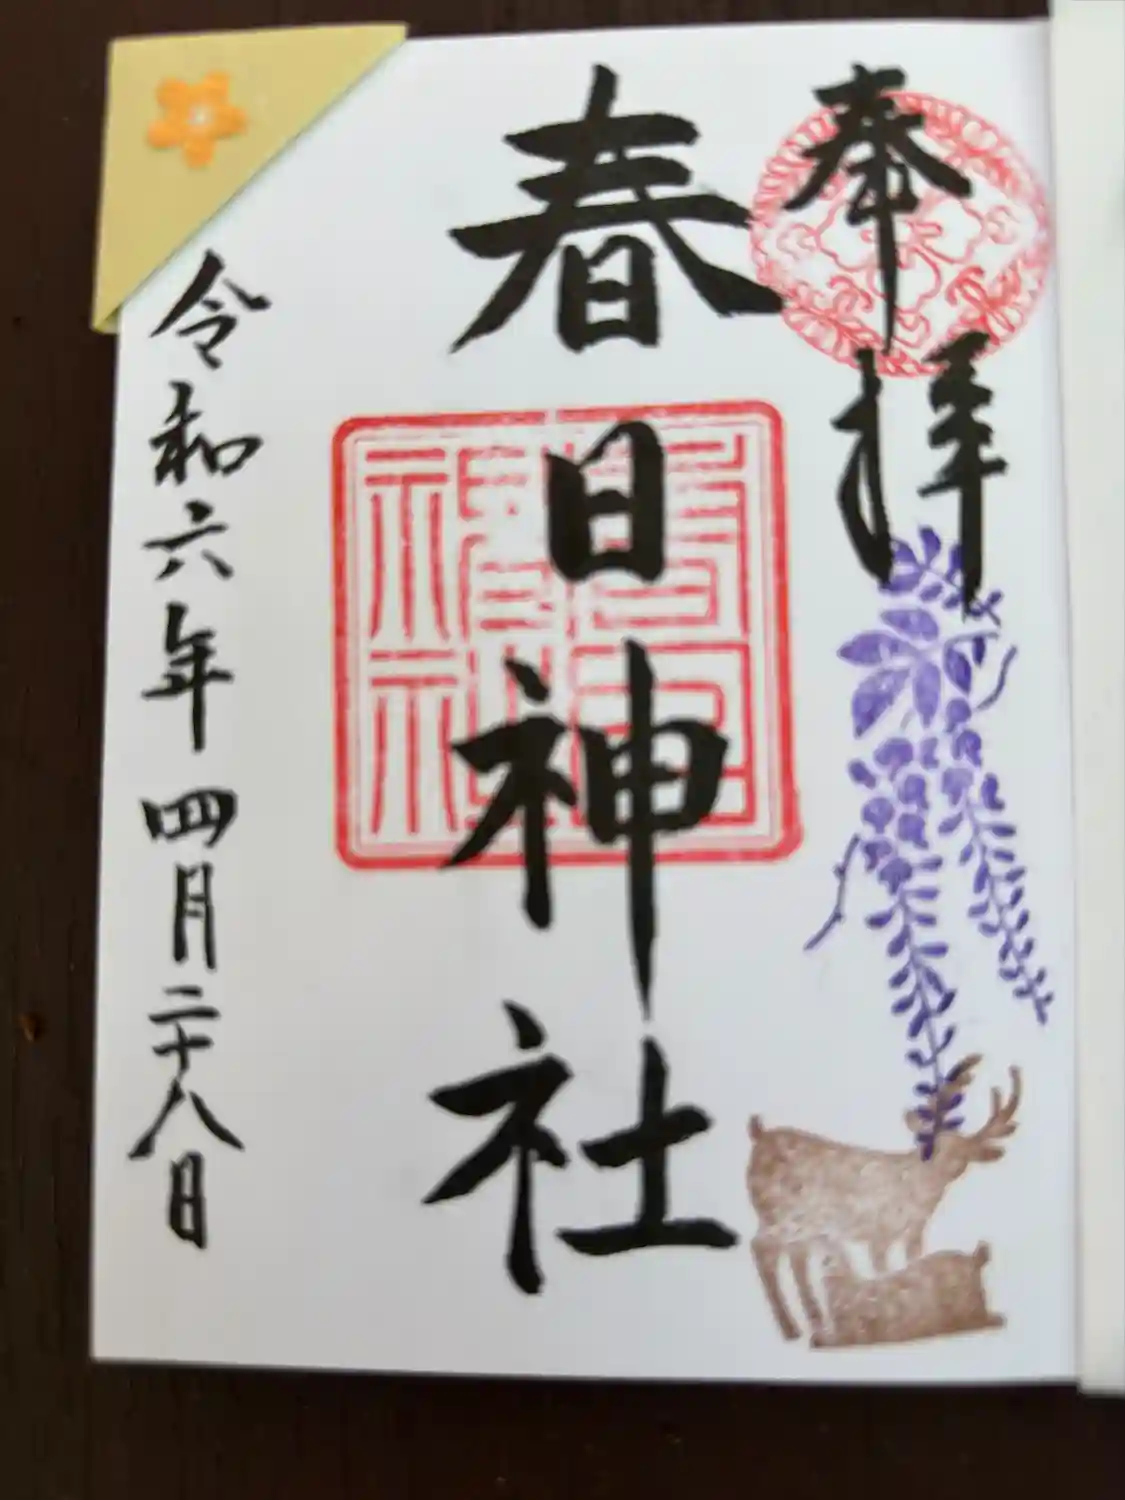 奉拝
春日神社
春日神社
令和六年四月二十八日